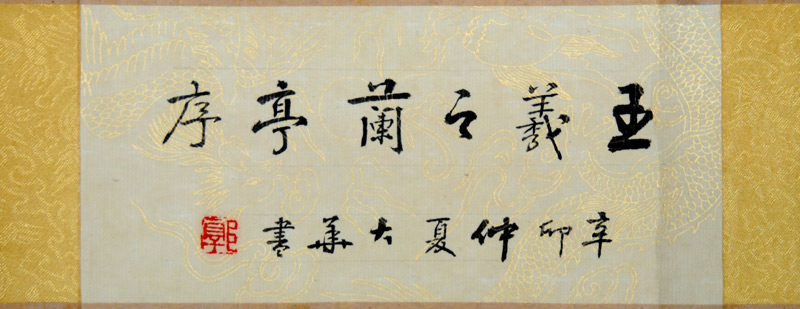 王羲之蘭亭序
辛卯仲夏大華書
郭